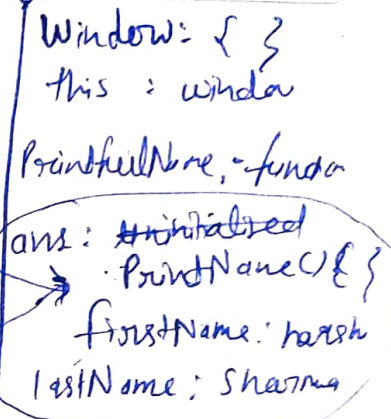 Window: { }
this : windo
PrintfullName: - functn
ans: uninitialized
PrintName() { }
firstName: harsh
lastName: Sharma